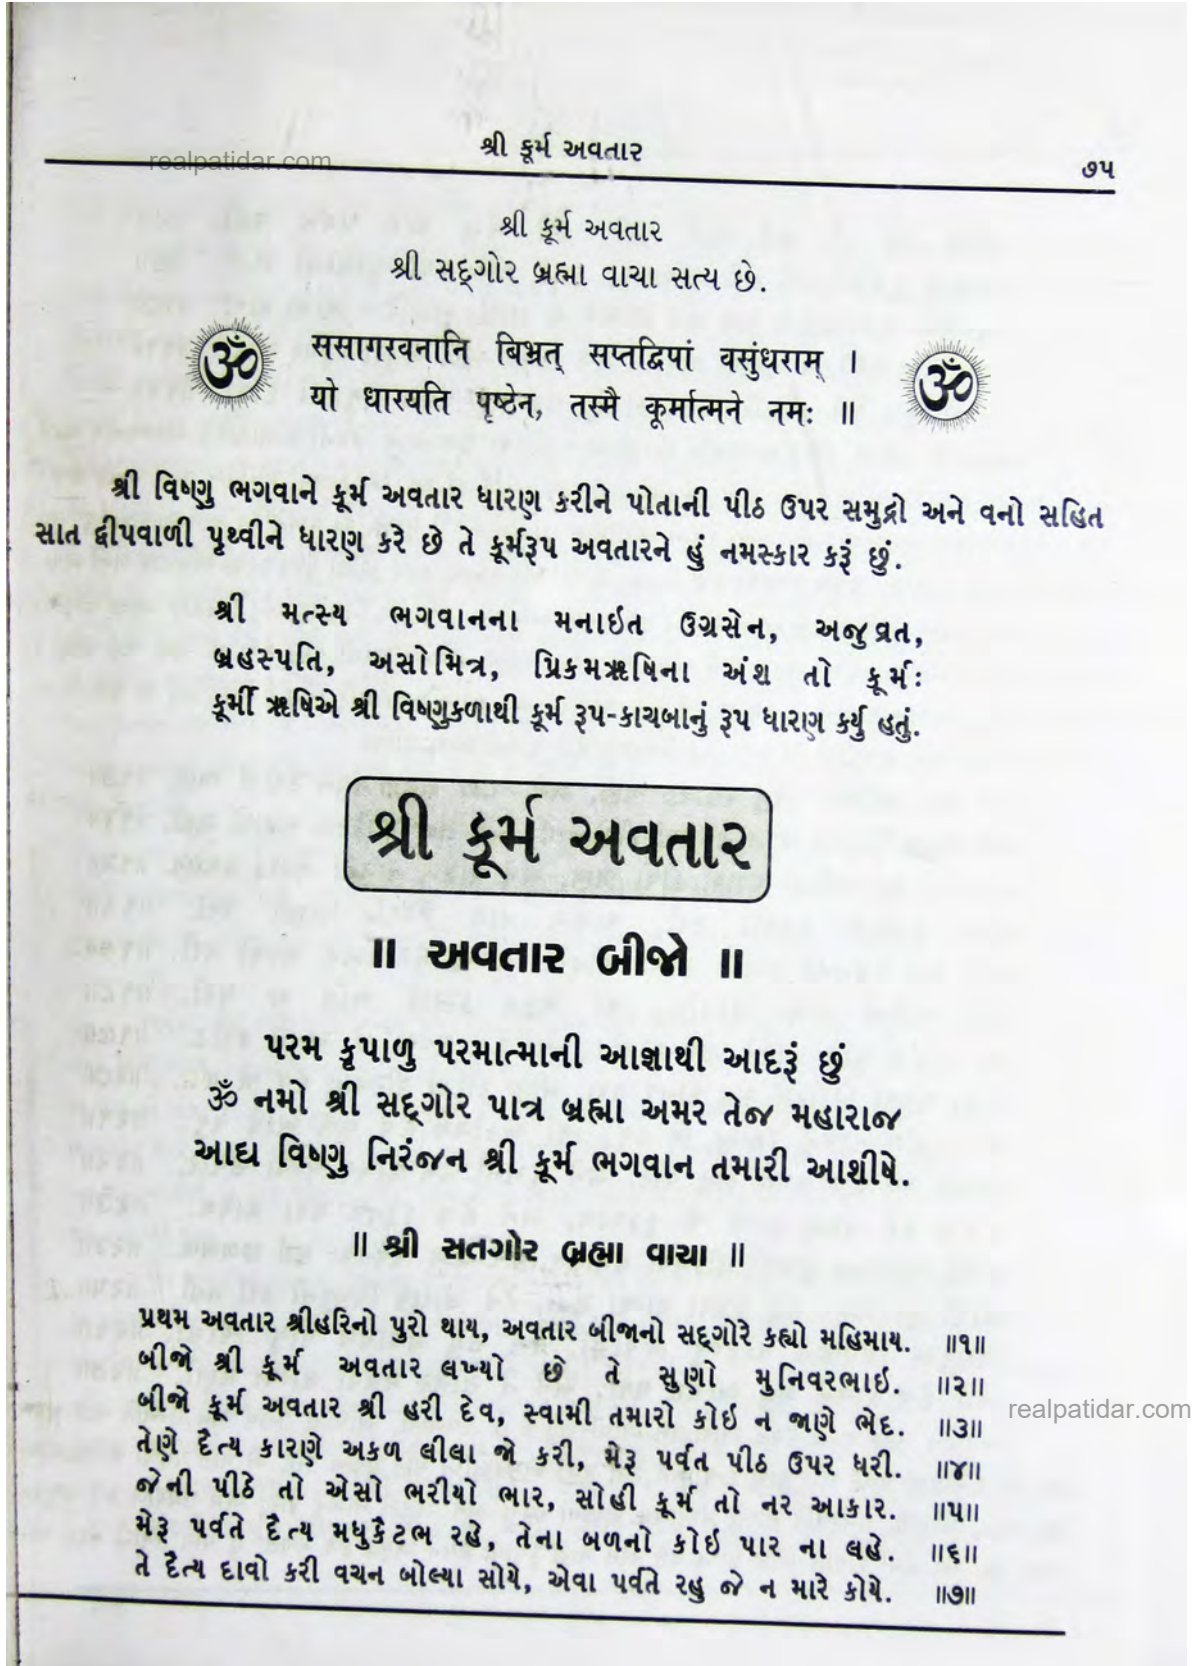 શ્રી કૂર્મ અવતાર
realpatidar.com
૭૫
શ્રી કૂર્મ અવતાર
શ્રી સદ્‌ગોર બ્રહ્મા વાચા સત્ય છે.
ૐ
સસાગરવનાનિ બિભ્રત્ સપ્તદ્વિપાં વસુંધરામ્ ।
યો ધારયતિ પૃષ્ઠેન, તસ્મૈ કૂર્માત્મને નમઃ ॥
ૐ
શ્રી વિષ્ણુ ભગવાને કૂર્મ અવતાર ધારણ કરીને પોતાની પીઠ ઉપર સમુદ્રો અને વનો સહિત
સાત દ્વીપવાળી પૃથ્વીને ધારણ કરે છે તે કૂર્મરૂપ અવતારને હું નમસ્કાર કરૂં છું.
શ્રી મત્સ્ય ભગવાનના મનાઇત ઉગ્રસેન, અજુવ્રત,
બ્રહસ્પતિ, અસોમિત્ર, પ્રિકમઋષિના અંશ તો કૂર્મઃ
કૂર્મી ઋષિએ શ્રી વિષ્ણુકળાથી કૂર્મ રૂપ-કાચબાનું રૂપ ધારણ કર્યુ હતું.
શ્રી કૂર્મ અવતાર
॥ અવતાર બીજો ॥
પરમ કૃપાળુ પરમાત્માની આજ્ઞાથી આદરૂં છું
ૐ નમો શ્રી સદ્‌ગોર પાત્ર બ્રહ્મા અમર તેજ મહારાજ
આદ્ય વિષ્ણુ નિરંજન શ્રી કૂર્મ ભગવાન તમારી આશીષે.
॥ શ્રી સતગોર બ્રહ્મા વાચા ॥
પ્રથમ અવતાર શ્રીહરિનો પુરો થાય, અવતાર બીજાનો સદ્‌ગોરે કહ્યો મહિમાય. ॥૧॥
બીજો શ્રી કૂર્મ અવતાર લખ્યો છે તે સુણો મુનિવરભાઇ. ॥૨॥
બીજો કૂર્મ અવતાર શ્રી હરી દેવ, સ્વામી તમારો કોઇ ન જાણે ભેદ. ॥૩॥
realpatidar.com
તેણે દૈત્ય કારણે અકળ લીલા જો કરી, મેરૂ પર્વત પીઠ ઉપર ધરી. ॥૪॥
જેની પીઠે તો એસો ભરીયો ભાર, સોહી કૂર્મ તો નર આકાર. ॥૫॥
મેરૂ પર્વતે દૈત્ય મધુકૈટભ રહે, તેના બળનો કોઇ પાર ના લહે. ॥૬॥
તે દૈત્ય દાવો કરી વચન બોલ્યા સોયે, એવા પર્વતે રહુ જે ન મારે કોયે. ॥૭॥